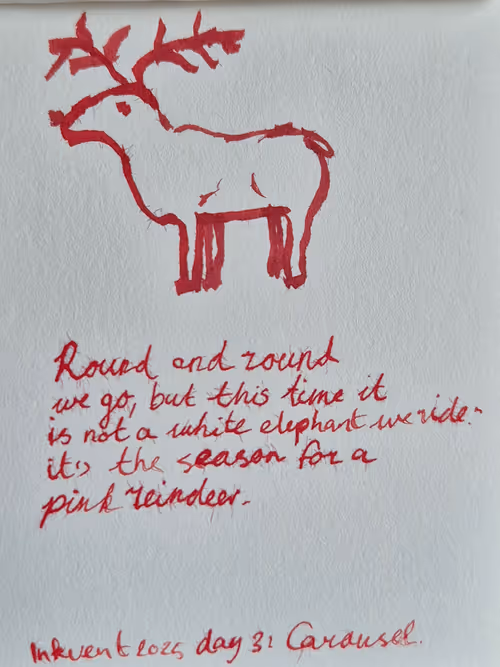 Round and round
we go, but this time it
is not a white elephant we ride:
it's the season for a
pink reindeer.
Inkvent 2025 day 3: Carousel.